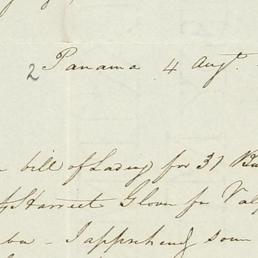 2 Panama 4 Augt.
bill of Lading for 31
Harriet Glover for Valp
I apprehend soon